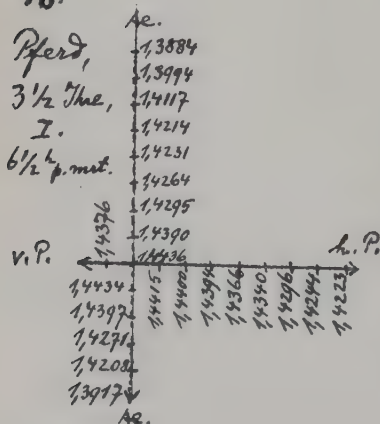 Ae.
Pferd,
3 1/2 Jhre,
I.
6 1/2 h p. mrt.
1,3884
1,3994
1,4117
1,4214
1,4231
1,4264
1,4295
1,4390
1,4436
v. P.
h. P.
1,4376
1,4415
1,4409
1,4394
1,4366
1,4340
1,4296
1,4244
1,4223
1,4434
1,4397
1,4271
1,4208
1,3917
Ae.